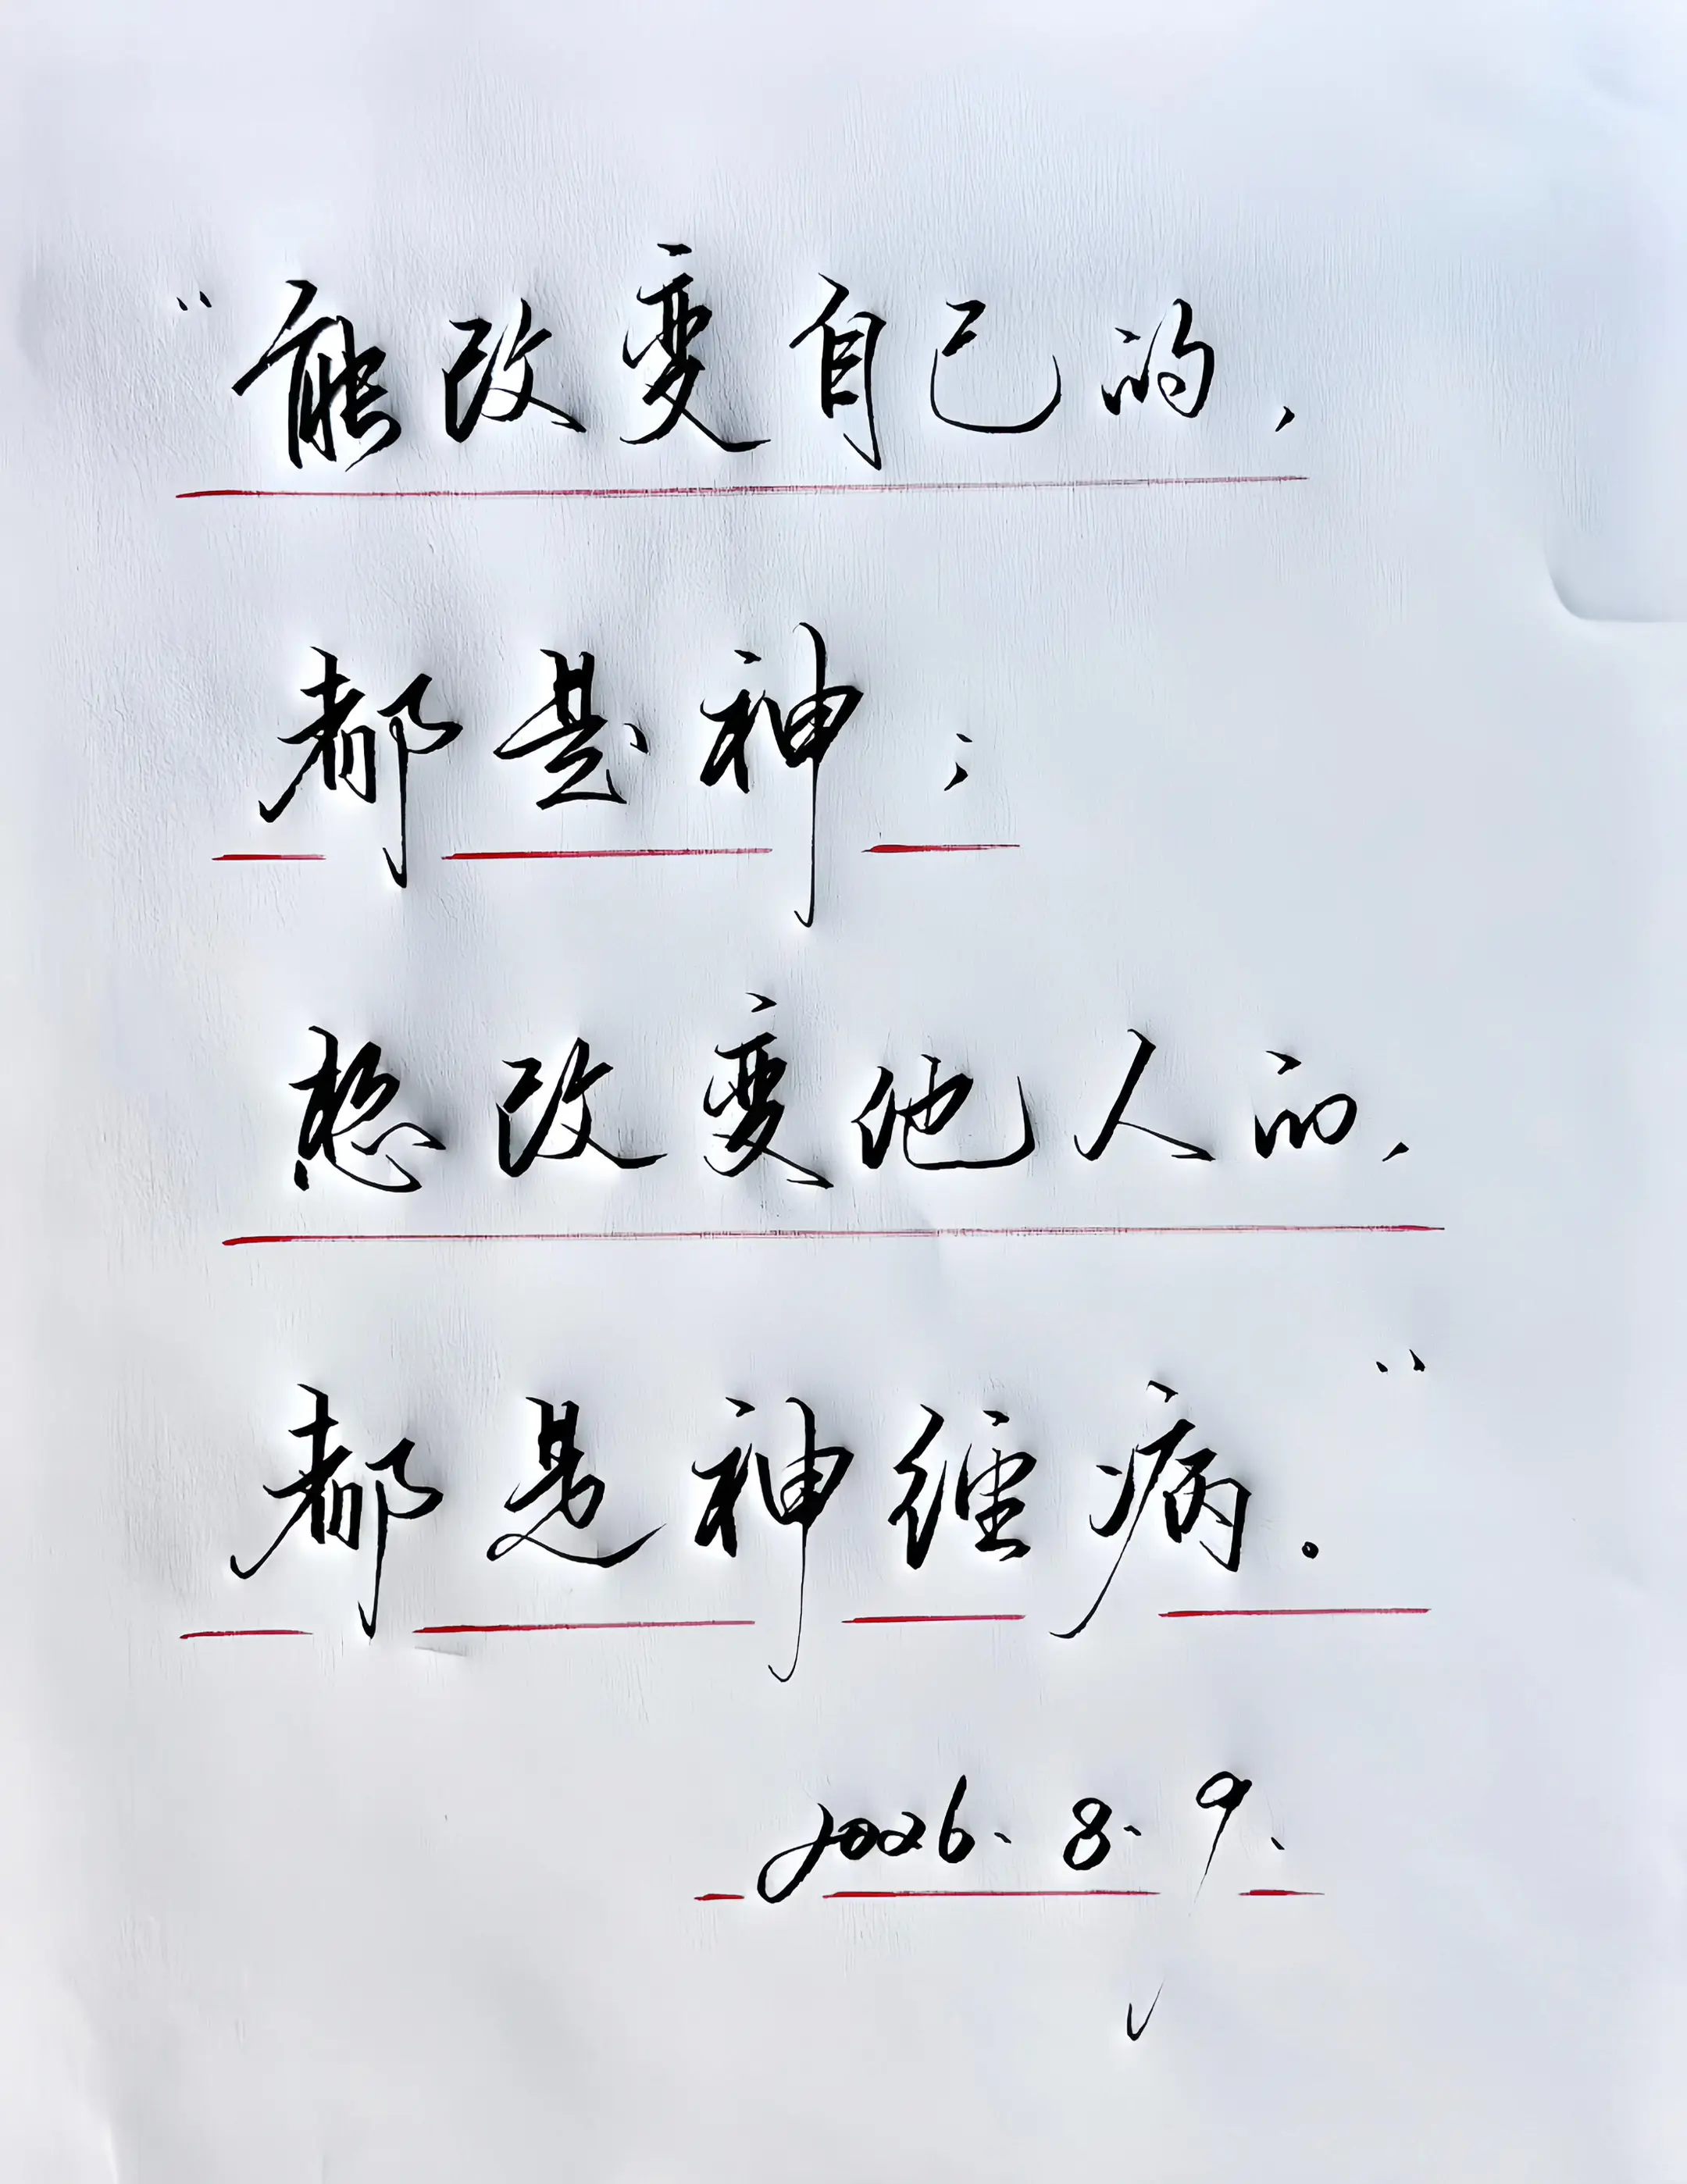 “能改变自己的,
都是神;
想改变他人的,
都是神经病.”
2026.8.9.